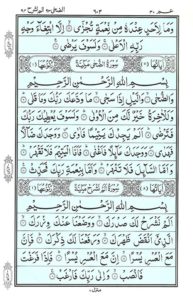 وَمَا لِاَحَدٍ عِنْدَهٗ مِنْ نِّعْمَةٍ تُجْزٰۤى ۙ اِلَّا ابْتِغَآءَ وَجْهِ
رَبِّهِ الْاَعْلٰى ۚ وَلَسَوْفَ يَرْضٰى
سُوْرَةُ الضُّحٰى مَكِّيَّةٌ
بِسْمِ اللّٰهِ الرَّحْمٰنِ الرَّحِيْمِ
وَالضُّحٰى ۙ وَالَّيْلِ اِذَا سَجٰى ۙ مَا وَدَّعَكَ رَبُّكَ وَمَا قَلٰى
وَلَلْاٰخِرَةُ خَيْرٌ لَّكَ مِنَ الْاُوْلٰى ۙ وَلَسَوْفَ يُعْطِيْكَ رَبُّكَ
فَتَرْضٰى ۙ اَلَمْ يَجِدْكَ يَتِيْمًا فَاٰوٰى ۪ وَوَجَدَكَ ضَآلًّا فَهَدٰى
وَوَجَدَكَ عَآئِلًا فَاَغْنٰى ۙ فَاَمَّا الْيَتِيْمَ فَلَا تَقْهَرْ
وَاَمَّا السَّآئِلَ فَلَا تَنْهَرْ ۙ وَاَمَّا بِنِعْمَةِ رَبِّكَ فَحَدِّثْ
سُوْرَةُ اَلَمْ نَشْرَحْ مَكِّيَّةٌ
بِسْمِ اللّٰهِ الرَّحْمٰنِ الرَّحِيْمِ
اَلَمْ نَشْرَحْ لَكَ صَدْرَكَ ۙ وَوَضَعْنَا عَنْكَ وِزْرَكَ
الَّذِيْۤ اَنْقَضَ ظَهْرَكَ ۙ وَرَفَعْنَا لَكَ ذِكْرَكَ ۙ فَاِنَّ
مَعَ الْعُسْرِ يُسْرًا ۙ اِنَّ مَعَ الْعُسْرِ يُسْرًا ۙ فَاِذَا فَرَغْتَ
فَانْصَبْ ۙ وَاِلٰى رَبِّكَ فَارْغَبْ